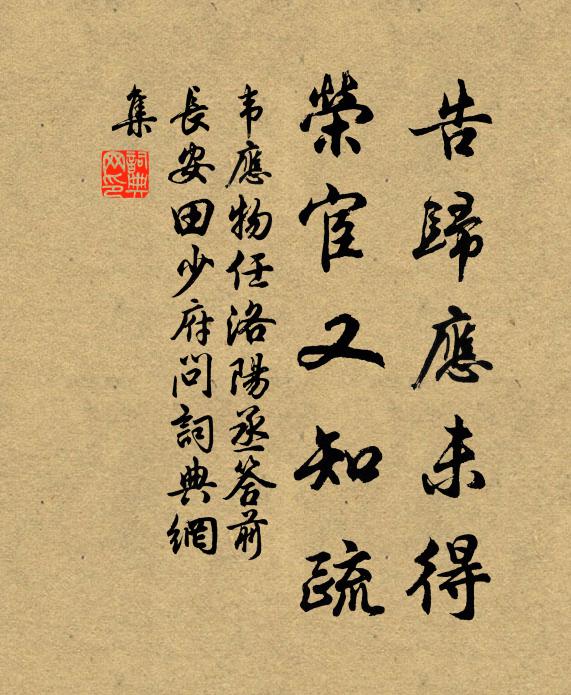 告歸應未得
榮宦又知疏
韋應物任洛陽丞答前
長安田少府問詞典網
集
詞典網印